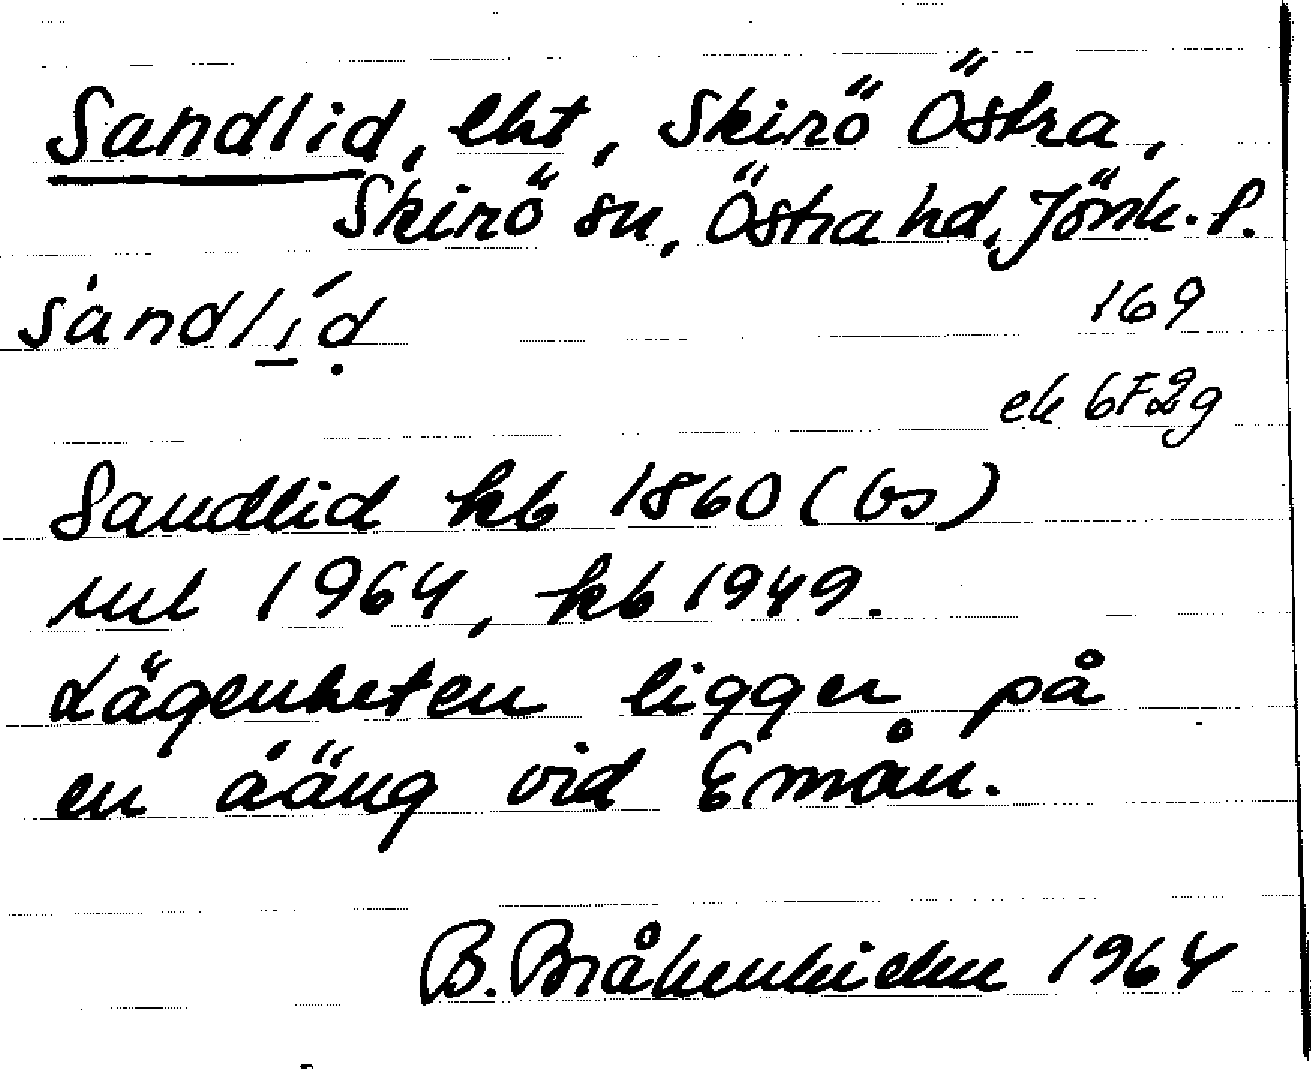 Sandlid, lht, Skirö Östra,
Skirö sn, Östra hd, Jönk. l.
sàndlíḍ
169
ek 6F2g
Sandlid kb 1860 (bs)
rul 1964, kb 1949.
Lägenheten ligger på
en åäng vid Emån.
B. 1964